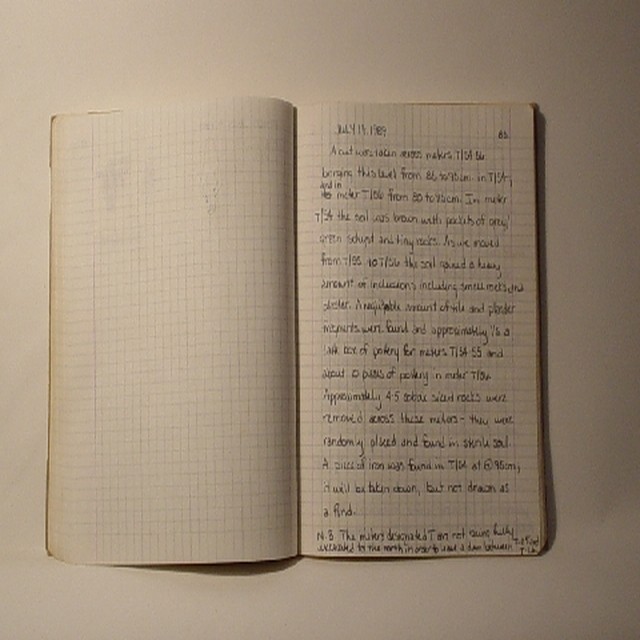 JULY 14, 1989 65
A cut was taken across meters T/54-56
bringing this level from 85 to 95cm. in T/54,
and in
meter T/56 from 80 to 95cm. In meter
T/54 the soil was brown with pockets of grey/
green schist and tiny rocks. As we moved
from T/55 to T/56 the soil gained a heavy
amount of inclusions including small rocks and
plaster. A negligible amount of tile and plaster
fragments were found and approximately 1/2 a
box of pottery for meters T/54-55 and
about 10 pieces of pottery in meter T/56.
Approximately 4-5 sized rocks were
removed across these meters - they were
randomly placed and found in sterile soil.
A piece of iron was found in T/54 at @ 95cm,
it will be taken down, but not drawn as
a find.
N.B. The meters designated T are not being fully
excavated to the north in order to leave a between